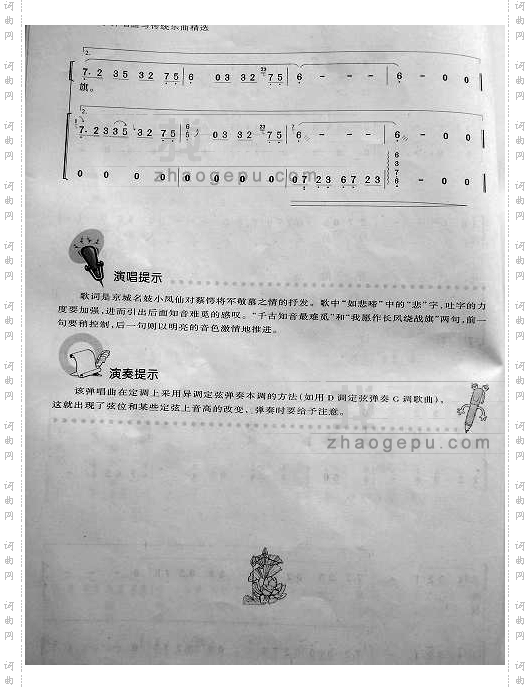 传统乐曲精选
2.
7· 2 3 5 3 2 7 5 | 6 0 3 3 2 7 5 | 6 - - - | 6 - 0 0
旗。
2.
7· 2 3 3 5 3 2 7 5 | 6 0 3 3 2 7 5 | 6 - - - | 6 - 0 0
0 0 0 0 | 0 0 0 0 | 0 7 2 3 6 7 2 3 | 6 3 7 6 - 0 0
zhaogepu.com
演唱提示
歌词是京城名妓小凤仙对蔡锷将军敬慕之情的抒发。歌中“如悲啼”中的“悲”字,吐字的力
度要加强,进而引出后面知音难觅的感叹。“千古知音最难觅”和“我愿作长风绕战旗”两句,前一
句要稍控制,后一句则以明亮的音色激情地推进。
演奏提示
该弹唱曲在定调上采用异调定弦弹奏本调的方法(如用 D 调定弦弹奏 G 调歌曲),
这就出现了弦位和某些定弦上音高的改变、弹奏时要给予注意。
zhaogepu.com
词曲网